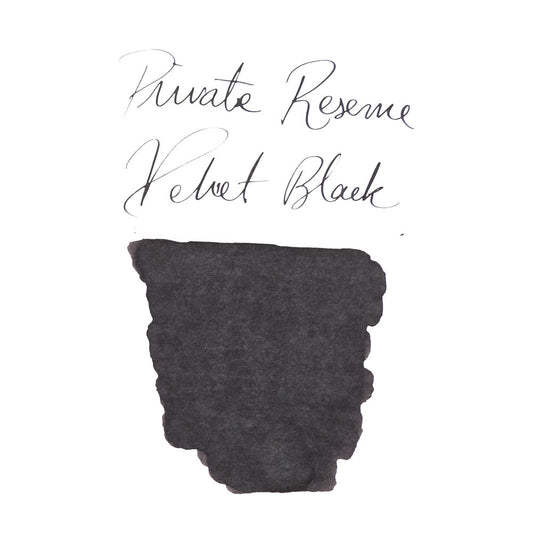 Private Reserve
Velvet Black